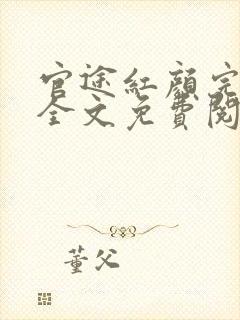 官途紅顏完
全文免費閱
董父